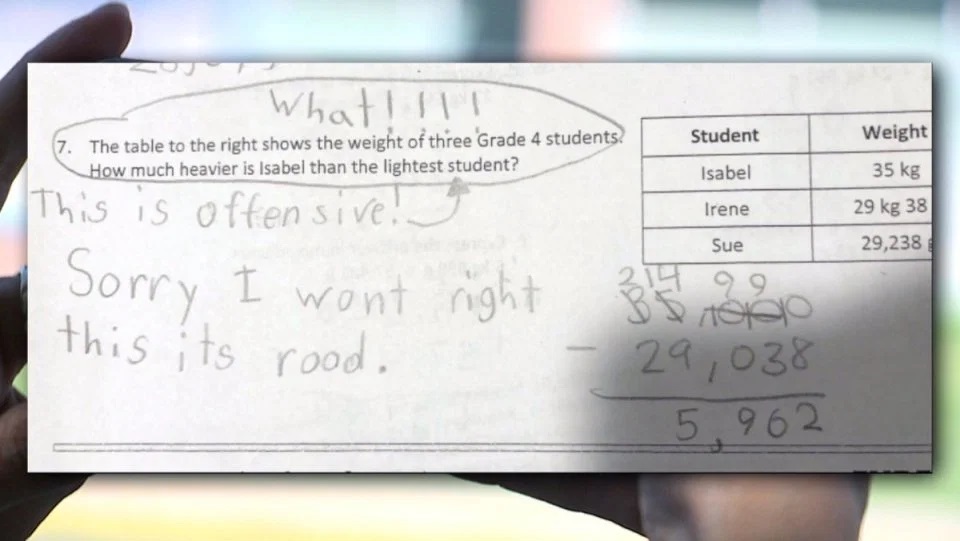 What!!!!!
7. The table to the right shows the weight of three Grade 4 students.
How much heavier is Isabel than the lightest student?
This is offensive!
Sorry I wont right
this its rood.
Student Weight
Isabel 35 kg
Irene 29 kg 38
Sue 29,238 g
314 99
35 10000
- 29,038
5,962